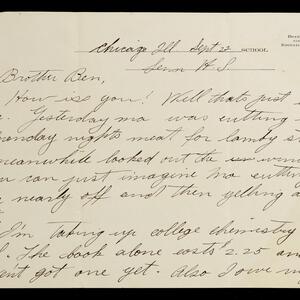 Chicago Ill Sept 22
SCHOOL
Senn H. S.
Brother Ben,
How is you! Well thats just
Yesterday ma was cutting
nights meat for
meanwhile looked out the
can just imagine ma cutting
nearly off and then yelling
I'm taking up college chemistry
The book alone costs 2.25 and
got one yet. Also I owe